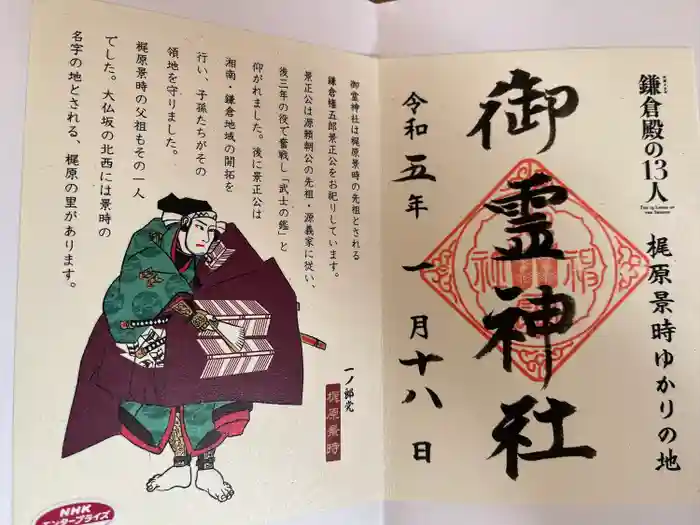 鎌倉殿の13人
THE 13 LORDS OF
THE SHOGUN
梶原景時ゆかりの地
御霊神社
令和五年 一月十八日
御霊神社は梶原景時の先祖とされる
鎌倉権五郎景正公をお祀りしています。
景正公は源頼朝公の先祖・源義家に従い、
後三年の役で奮戦し「武士の鑑」と
仰がれました。後に景正公は
湘南・鎌倉地域の開拓を
行い、子孫たちがその
領地を守りました。
梶原景時の父祖もその一人
でした。大仏坂の北西には景時の
名字の地とされる、梶原の里があります。
一ノ郎党
梶原景時
NHK
エンタープライズ